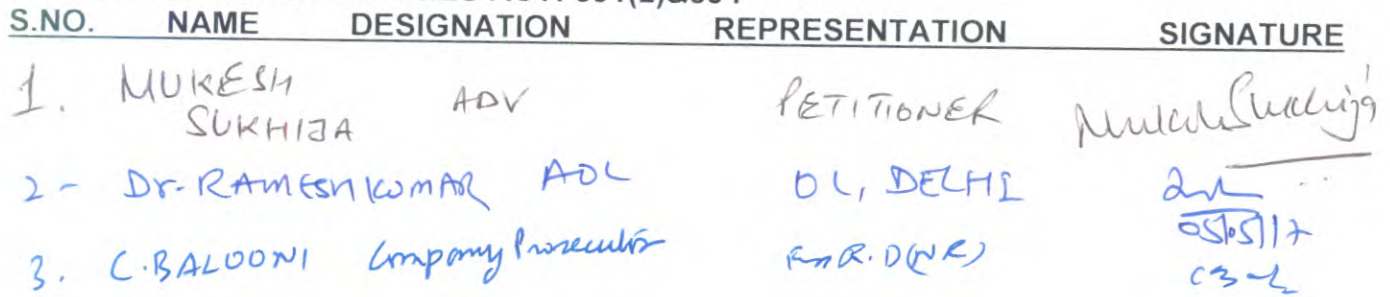 S.NO. NAME DESIGNATION REPRESENTATION SIGNATURE
1. MUKESH SUKHIJA ADV PETITIONER Mukesh Sukhija
2- Dr. RAMESH KUMAR AOL OL, DELHI
05/05/17
3. C. BALOONI Company Prosecutor For R.D(NR)